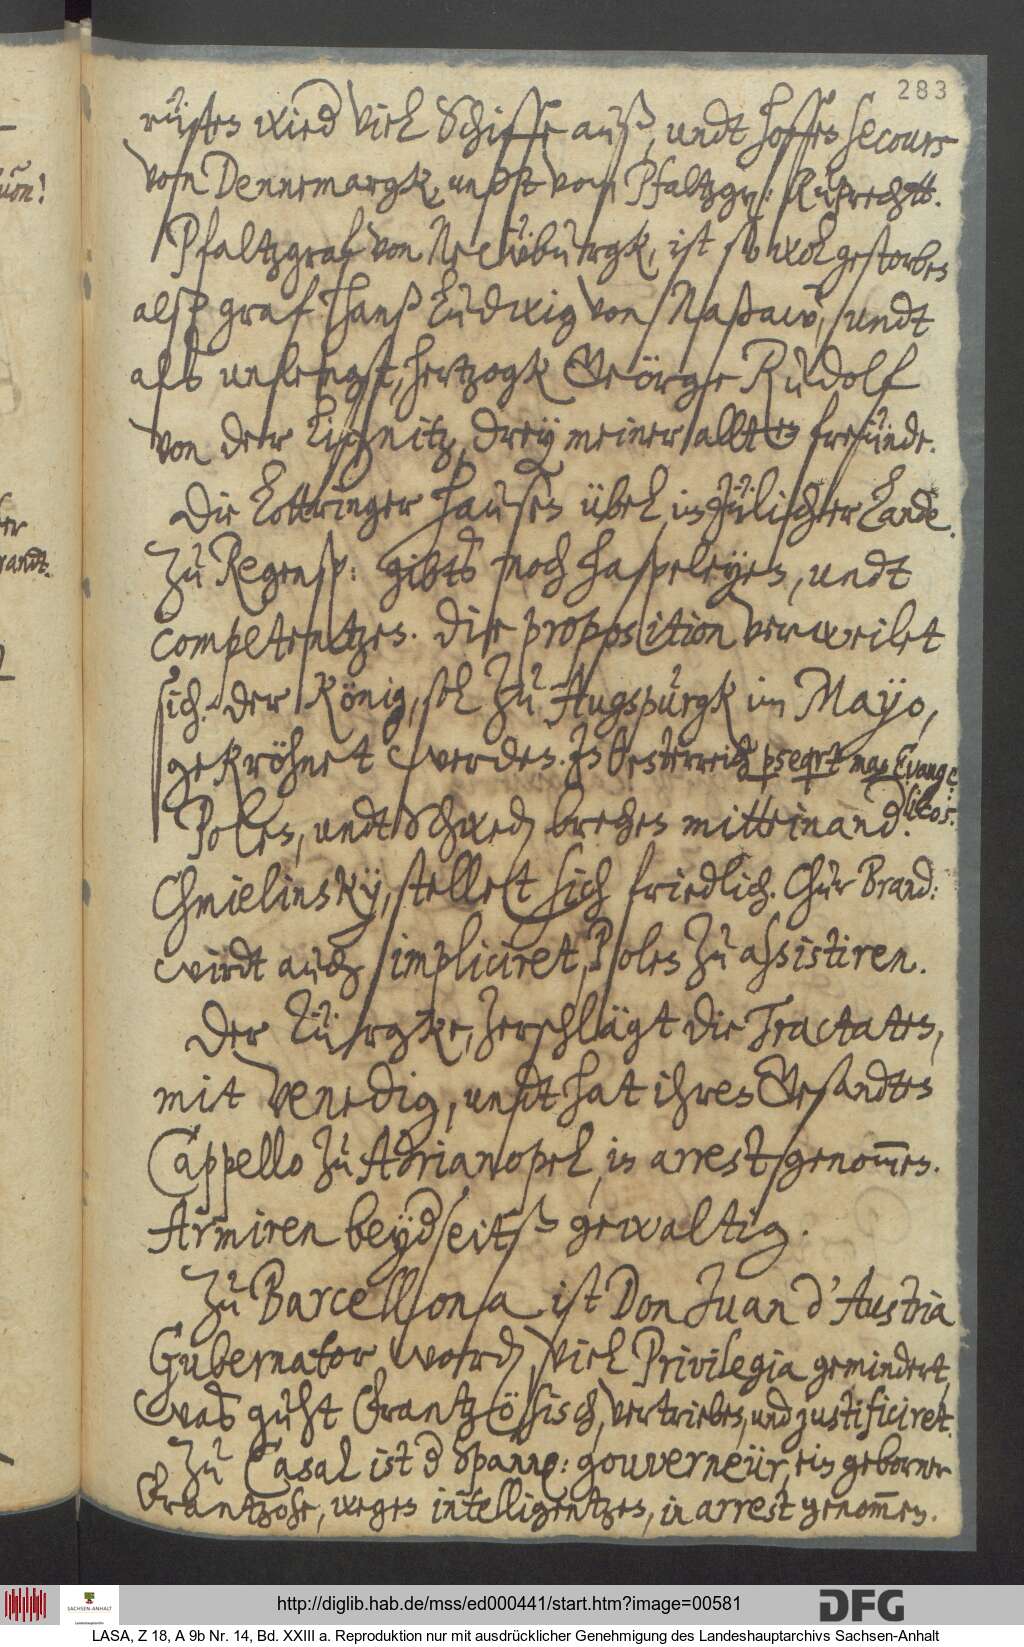 283
rüsten wied viel Schiffe auß, undt hoffen secours
von Dennemargk, undt von Pfaltzgr: Ruprecht.
Pfaltzgraf von Neẅburgk, ist so wol gestorben
alß graf Hanß Ludwig von Naßaw, undt
alß unlengst, hertzogk Geörge Rudolf
von der Lignitz, drey meiner allten freünde.
Die Lottringer hausen übel, im Jülischer Lande.
Zu Regensp: gibts noch haspeleyen, undt
competentzen. Die proposition verweilet
sich. Der König, sol zu Augspurgk im Mayo,
gekröhnet werden. In Oesterreich pseqrt man Evange
licos.
Polen, undt Schwed brechen mitteinand.
Chmielinsky, stellet sich friedlich. Chur Brand:
wirdt auch impliciret, Polen zu assistiren.
Der Türgke, zerschlägt die Tractaten,
mit Venedig, undt hat ihren Gesandten
Cappello zu Adrianopel, in arrest genom̅en.
Armiren beydseitß gewaltig.
Zu Barcellona ist Don Juan d'Austria
Gubernator word, viel Privilegia gemindert,
was guht Frantzösisch, vertrieben, und justificiret.
Zu Casal ist d Spann: gouverneür, ein geborner
Frantzose, wegen intelligentzen, in arrest genom̅en.
http://diglib.hab.de/mss/ed000441/start.htm?image=00581
SACHSEN-ANHALT
Landeshauptarchiv
DFG
LASA, Z 18, A 9b Nr. 14, Bd. XXIII a. Reproduktion nur mit ausdrücklicher Genehmigung des Landeshauptarchivs Sachsen-Anhalt